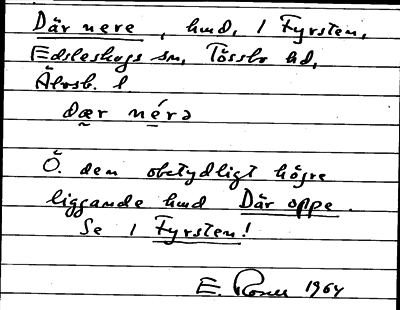 Där nere, hmd, 1 Fyrsten,
Edsleskogs sn, Tössbo hd,
Älvsb. l.
dær nérə
Ö. den obetydligt högre
liggande hmd Där oppe.
Se 1 Fyrsten!
E. 1964